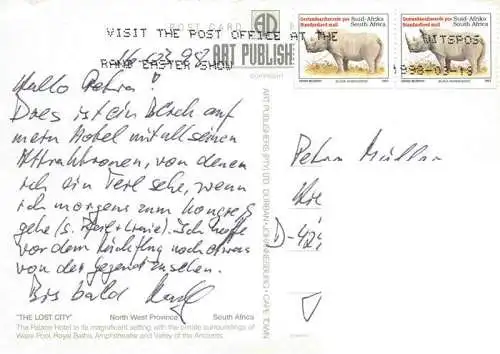 POST CARD
VISIT THE POST OFFICE AT THE
RAND EASTER SHOW
ART PUBLISH
COPYRIGHT
Standardposttarief pos Suid-Afrika
Standardised mail South Africa
Suid-Afrika
Standardised mail South Africa
WITSPOS
1998-03-13
Hallo Petra!
Dies ist ein Blick auf
mein Hotel mit all seinen
Attraktionen, von denen
ich ein Teil sehe, wenn
ich morgens zum Kongreß
gehe (s. Pfeil + Linie). Ich hoffe
vor dem Rückflug noch etwas
von der Gegend zu sehen.
Bis bald
Petra Müller
D-42
ART PUBLISHERS (PTY) LTD. DURBAN • JOHANNESBURG • CAPE TOWN
"THE LOST CITY" North West Province South Africa
The Palace Hotel in its magnificent setting with the ornate surroundings of
Wave Pool, Royal Baths, Amphitheatre and Valley of the Ancients.